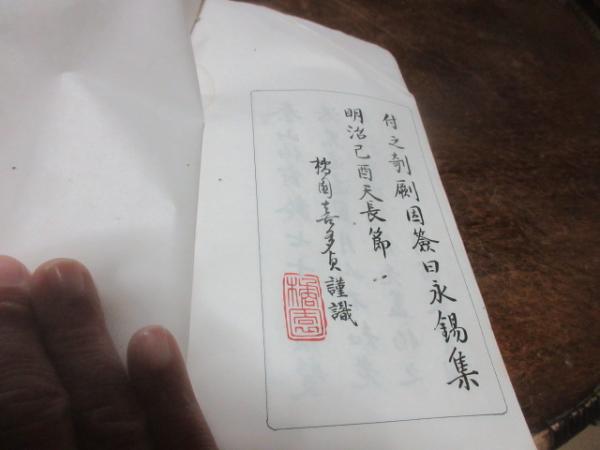 付之剞劂因簽曰永錫集
明治己酉天長節
橘園喜多貞謹識
橘園